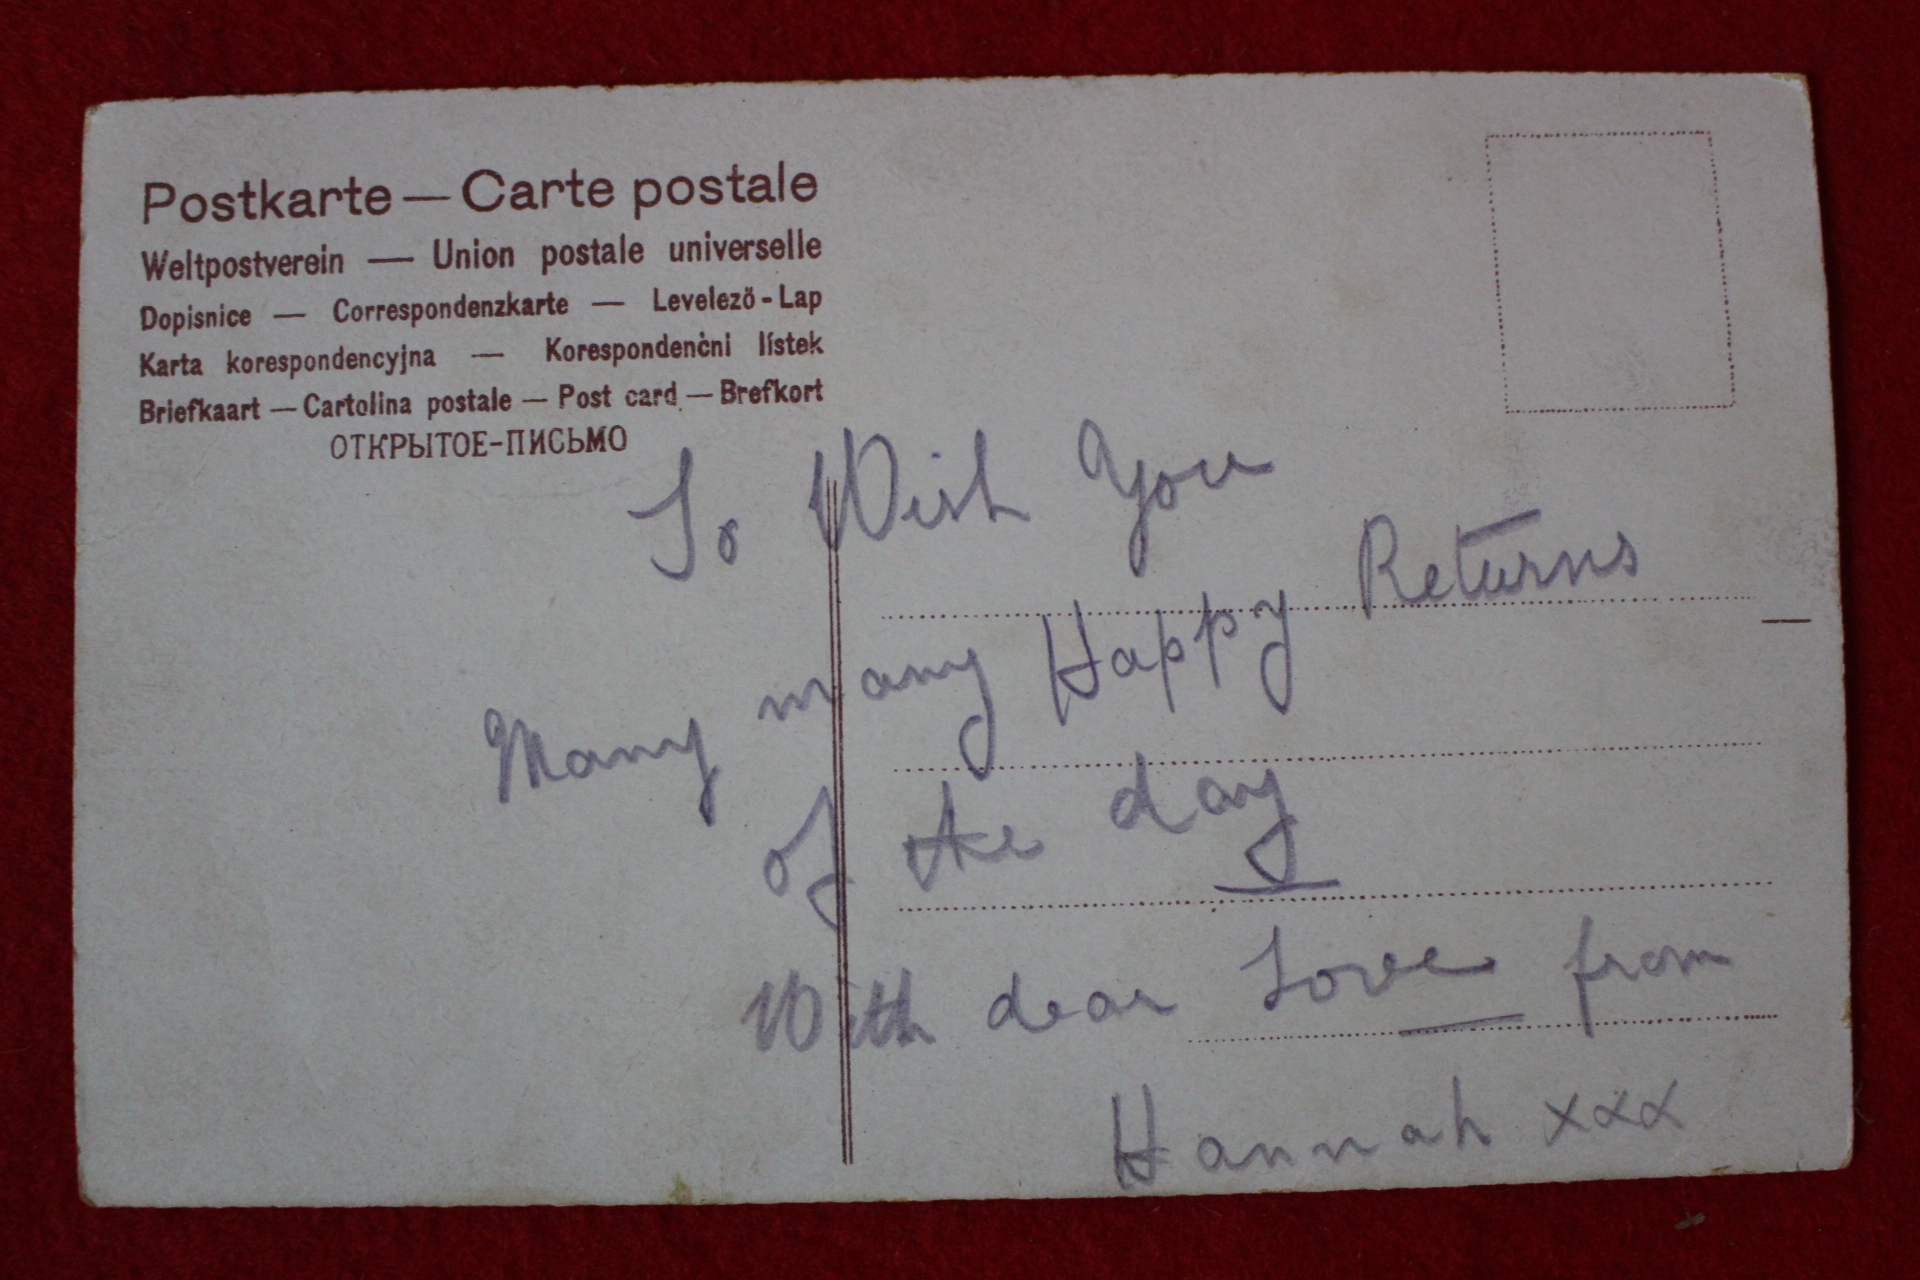 Postkarte — Carte postale
Weltpostverein — Union postale universelle
Dopisnice — Correspondenzkarte — Levelezö-Lap
Karta korespondencyjna — Korespondenčni lístek
Briefkaart — Cartolina postale — Post card — Brefkort
ОТКРЫТОЕ-ПИСЬМО
To Wish You
Many many Happy Returns
of the day
With dear Love from
Hannah xxx